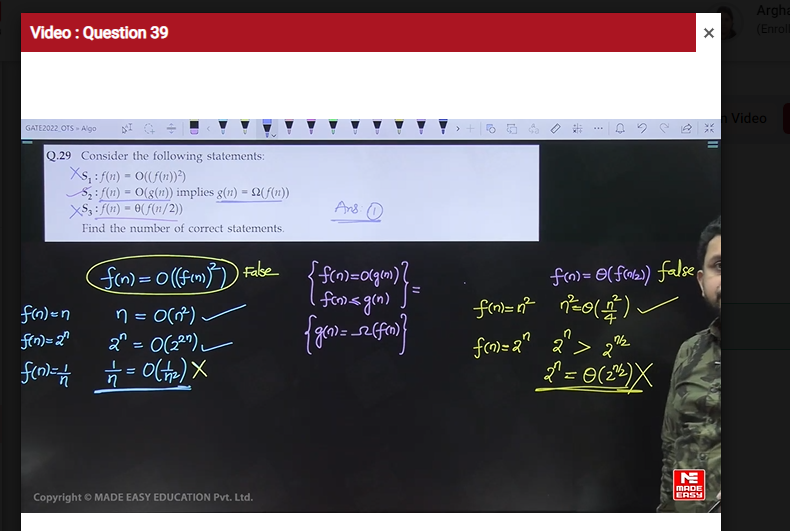 Argha
Video : Question 39
×
(Enroll
n Video
GATE2022_OTS » Algo
Q.29 Consider the following statements:
X S₁ : f(n) = O((f(n))²)
✓ S₂ : f(n) = O(g(n)) implies g(n) = Ω(f(n))
X S₃ : f(n) = θ(f(n/2))
Ans: 1
Find the number of correct statements.
f(n) = O((f(n))²) False
f(n) = n n = O(n²) ✓
f(n) = 2ⁿ 2ⁿ = O(2²ⁿ) ✓
f(n) = 1/n 1/n = O(1/n²) X
{ f(n) = O(g(n)) } =
f(n) ≤ g(n)
{ g(n) = Ω(f(n)) }
f(n) = θ(f(n/2)) false
f(n) = n² n² = θ(n²/4) ✓
f(n) = 2ⁿ 2ⁿ > 2^(n/2)
2ⁿ = θ(2^(n/2)) X
Copyright © MADE EASY EDUCATION Pvt. Ltd.
ME
MADE
EASY